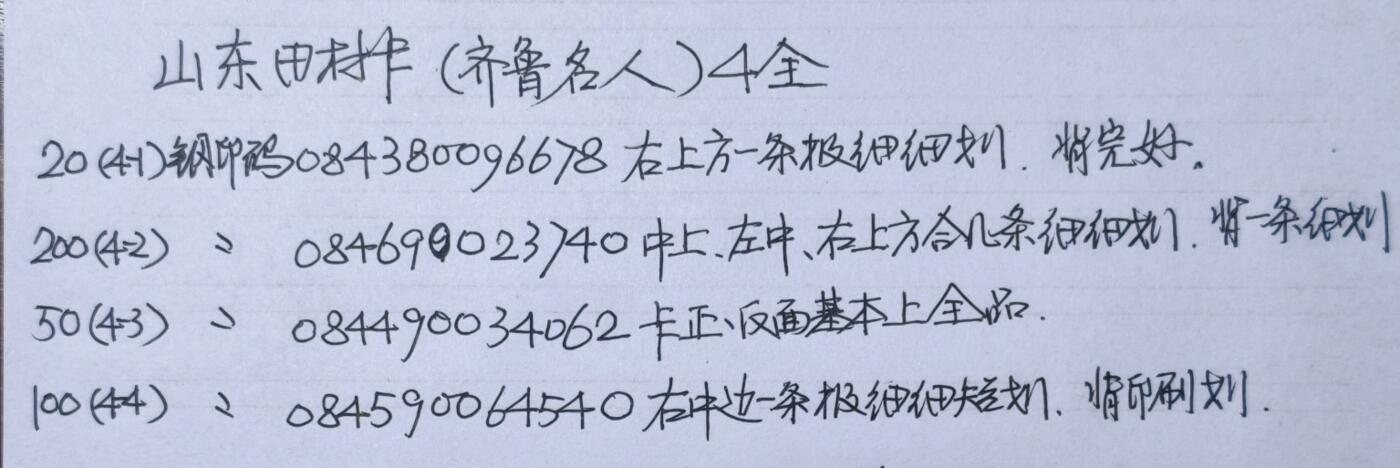 山东田村卡(齐鲁名人)4全
20(4-1)钢印码084380096678右上方一条极细细划.背完好。
200(4-2) 〃 084690023740中上、左中、右上方各几条细细划.背一条细划
50(4-3) 〃 084490034062卡正、反面基本上全品.
100(4-4) 〃 084590064540右中边一条极细细短划.背印刷划.